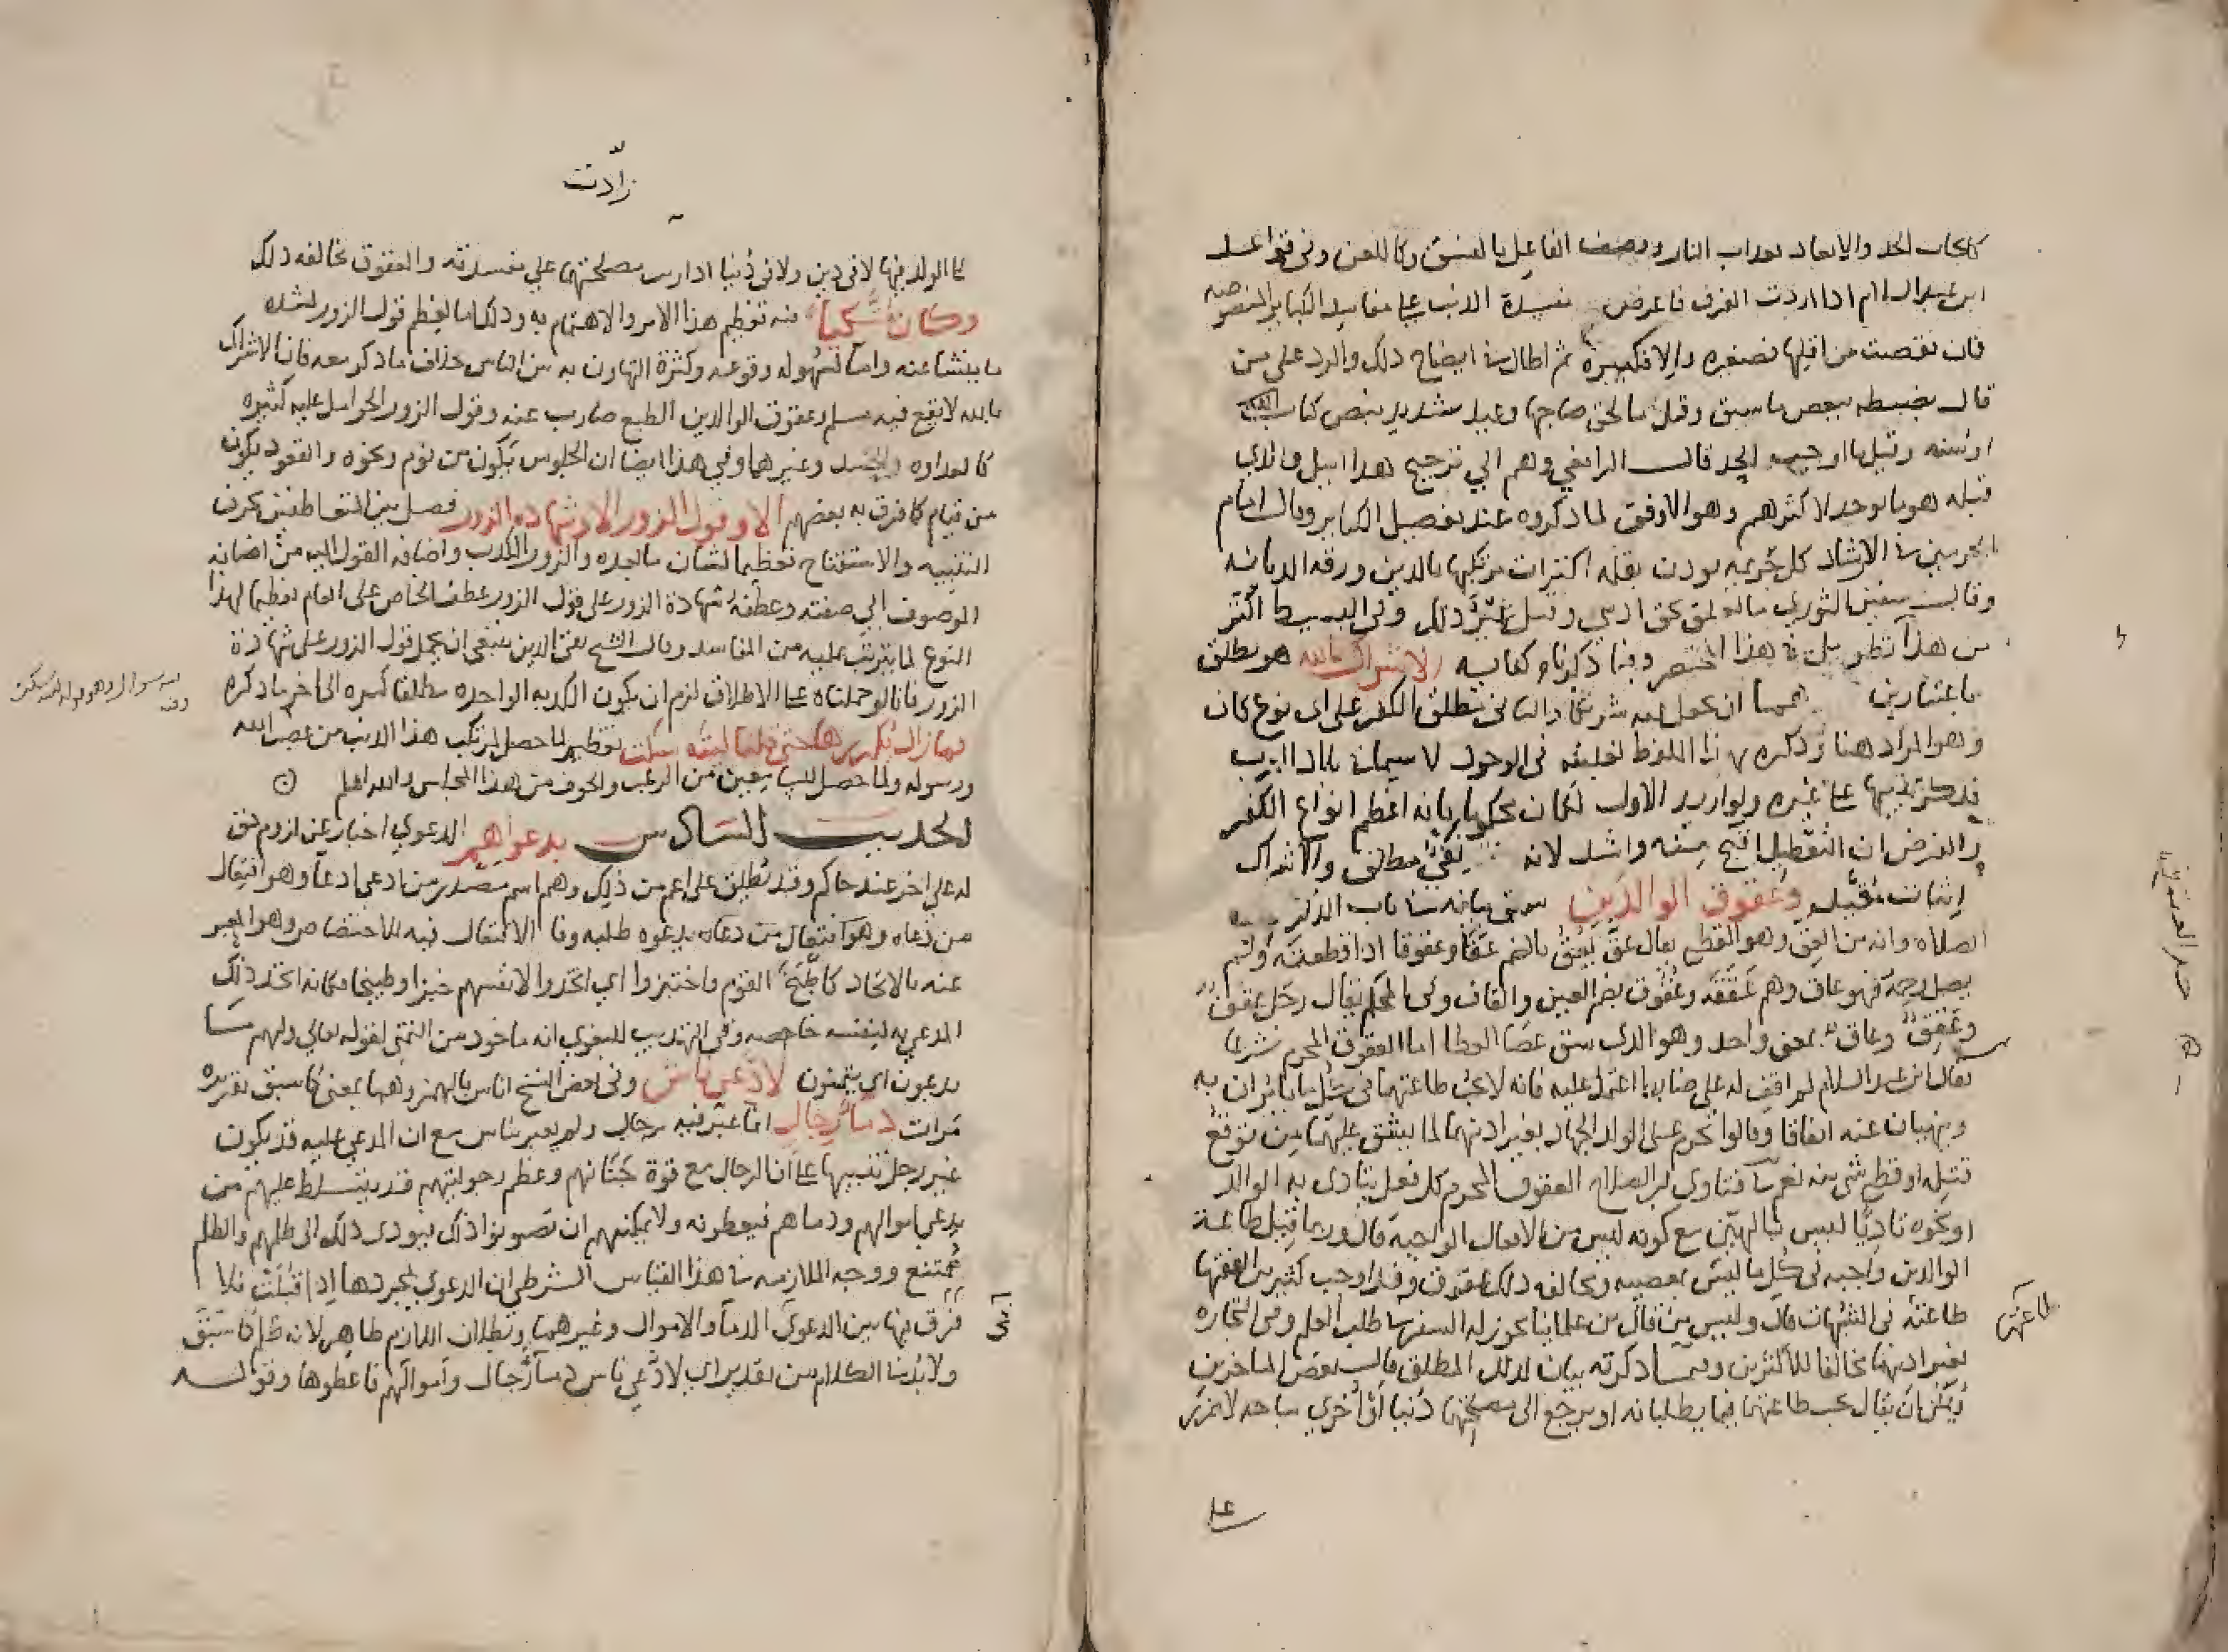 كايجاب الحد والايعاد بعذاب النار ووصف الفاعل بالفسق وكاللعن وفي قواعد
ابن عبد السلام اذا اردت الفرق فاعرض مفسدة الذنب على مفاسد الكباير المنصوصه
فان نقصت من اقلها فصغيره والا فكبيره ثم اطال في ايضاح ذلك والرد على من
قال بضبطه ببعض ما سبق وقيل ما لحق صاحبها وعيد شديد بنص كتاب
او سنه وقيل ما اوجب الحد قال الرافعي وهم الي ترجيح هذا اميل والذي
قبله هو ما يوجد لاكثرهم وهو الاوفق لما ذكروه عند تفصيل الكباير وقال امام
الحرمين في الارشاد كل جريمه توذن بقله اكتراث مرتكبها بالدين ورقه الديانه
وقال سفين الثوري ما تعلق بحق ادمي وقيل غير ذلك وفي البسيط اكثر
من هذا تطويل في هذا المختصر وفيما ذكرناه كفايه الاشراك بالله هو يطلق
باعتبارين ان يجعل لله شريكا والثاني يطلق الكفر على اي نوع كان
وهو المراد هنا وذكره هذا اللفظ لغلبته في الوجود لا سيما في بلاد العرب
فذكر تنبيها على غيره ولو اريد الاول لكان محكوما بانه اعظم انواع الكفر
والفرض ان التعطيل اقبح منه واشد لانه نفي مطلق والاشراك
اثبات مقيد وعقوق الوالدين سبق بيانه في باب الذكر
الصلاه وانه من العق وهو القطع يقال عق يعق بالضم عقا وعقوقا اذا قطعته ولم
يصل رحمه فهو عاق وهم عققه وعقوق بضم العين والقاف وفي المحكم يقال رجل عقوق
وعقق وعاق بمعني واحد وهو الذي سبق عصا الوطا اما العقوق المحرم شرعا
فقال ابن عبد السلام لم اقف له على ضابط اعتمد عليه فانه لا يجب طاعتهما في كل ما يامران به
وينهيان عنه اتفاقا وقالوا تحرم على الولد الجهاد بغير اذنهما لما يشق عليهما من توقع
قتله او قطع شي منه نعم في فتاوي ابن الصلاح العقوق المحرم كل فعل يتاذى به الوالد
او نحوه تاذيا ليس بالهين مع كونه ليس من الافعال الواجبه قال وربما قيل طاعة
الوالدين واجبه في كل ما ليس بمعصيه ومخالفه ذلك عقوق وقد اوجب كثير من الفقها
طاعته في الشبهات قال وليس من قال من علمائنا يجوز له السفر في طلب العلم وفي التجاره
طاعتهما
بغير اذنهما مخالفا للاكثرين وفيما ذكرته بيان لذلك المطلق قال بعض المتاخرين
ويمكن ان يقال يجب طاعتهما فيما يطلبانه او يرجع الى مصلحتهما دنيا او اخري مما حد لا ضرر
على
زادت
على الولد فيها لا في دين ولا في دنيا اذا رات مصلحتها على مفسدته والعقوق مخالفه ذلك
وكان متكيا فيه تعظيم هذا الامر والاهتمام به وذلك اما لعظم قول الزور لشده
ما ينشا عنه واما لسهوله وقوعه وكثرة التهاون به من الناس خلاف ما ذكر معه فان الاشراك
بالله لا يقع فيه مسلم وعقوق الوالدين الطبع صارف عنه وقول الزور الحوامل عليه كثيره
كالعداوه والحسد وغيرهما وفي هذا ايضا ان الجلوس يكون من نوم ونحوه والقعود يكون
من قيام كما فرق به بعضهم الا وقول الزور الا وشهاده الزور فصل بين المتعاطفين بحرف
التنبيه والاستفتاح تعظيما لشان ما بعده والزور الكذب واضافه القول اليه من اضافه
الموصوف الي صفته وعطفه شهادة الزور على قول الزور عطف الخاص على العام تعظيما لهذا
النوع لما يترتب عليه من المفاسد وقال الشيخ تقي الدين ينبغي ان يحمل قول الزور على شهادة
الزور فانا لو حملناه على الاطلاق لزم ان يكون الكذبه الواحده مطلقا كبيره الى اخر ما ذكره
فما زال يكررها حتى قلنا ليته سكت تعظيم لما حصل لمرتكب هذا الذنب من غضب الله
ورسوله ولما حصل للسامعين من الرعب والخوف من هذا المجلس والله اعلم
الحديث السادس بدعواهم الدعوي اخبار عن لزوم حق
له على اخر عند حاكم وقد تطلق على اعم من ذلك وهم اسم مصدر من ادعى ادعا وهو افتعال
من دعاه وهو افتعال من دعاه يدعوه طلبه وفا الافتعال فيه للاختصاص وهو المعبر
عنه بالاتخاذ كاطبخ القوم واختبزوا اي اتخذوا لانفسهم خبزا وطبيخا فكانه اتخذ ذلك
المدعي به لنفسه خاصه وفي التهذيب للبغوي انه ماخوذ من التمني لقوله تعالي ولهم ما
يدعون اي يتمنون لادعى ناس وفي بعض النسخ اناس بالهمز وهما بمعني كما سبق تقريره
مرات دما رجال انما عبر فيه برجال ولم يعبر بناس مع ان المدعي عليه قد يكون
غير رجل تنبيها على ان الرجال مع قوة جنانهم وعظم رجوليتهم قد يتسلط عليهم من
يدعي اموالهم ودماهم فيعطونه ولا يمكنهم ان يصونوا ذلك فيودى ذلك الى ظلمهم والظلم
ممتنع ووجه الملازمه في هذا القياس الشرطي ان الدعوي بمجردها اذا قبلت فلا
فرق فيها بين الدعوي الدما والاموال وغيرهما وبطلان اللازم ظاهر لانه ظلم كما سبق
ولا بد في الكلام من تقدير اي لادعي ناس دما رجال واموالهم فاعطوها وقوله